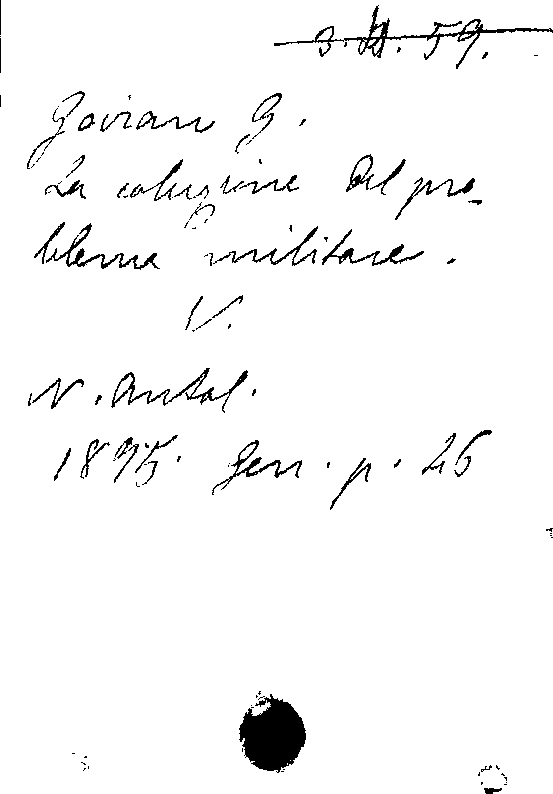 3. VI. 59.
Goiran G.
La soluzione del pro-
blema militare.
V.
N. Antol.
1895. Gen. p. 26